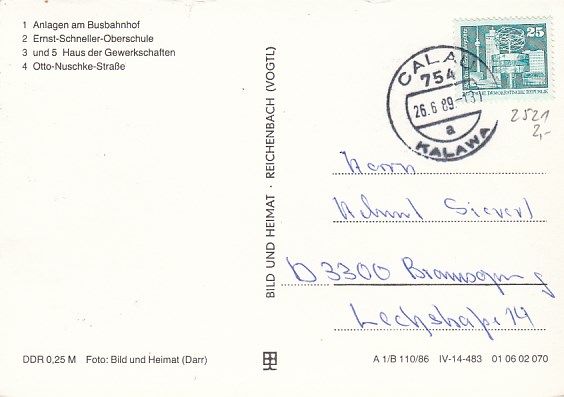 1 Anlagen am Busbahnhof
2 Ernst-Schneller-Oberschule
3 und 5 Haus der Gewerkschaften
4 Otto-Nuschke-Straße
BILD UND HEIMAT · REICHENBACH (VOGTL)
CALAU
754
26.6.89.-13
a
KALAWA
25
DEMOKRATISCHE REPUBLIK
2521
2,-
Herrn
Helmut Sievert
D 3300 Braunschweig
Lechstraße 14
DDR 0,25 M Foto: Bild und Heimat (Darr)
A 1/B 110/86 IV-14-483 01 06 02 070